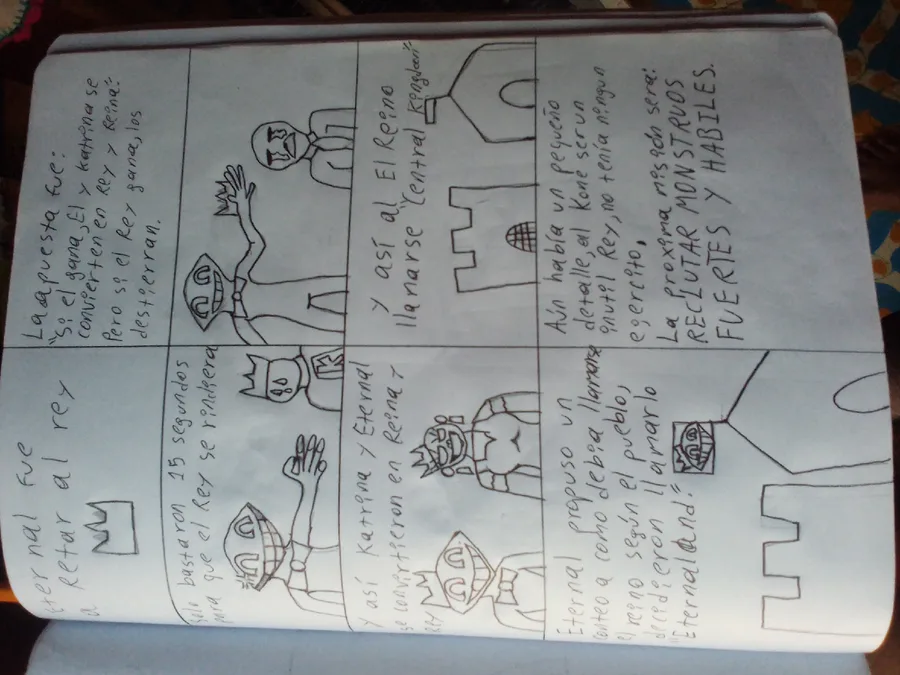 eternal fue
a retar al rey
La apuesta fue:
"Si el gana, El y Katrina se
convierten en Rey y Reina."
Pero si el Rey gana, los
destierran.
Solo bastaron 15 segundos
para que el Rey se rindiera
Y así Katrina y Eternal
se convirtieron en Reina y
Rey
y así al El Reino
llamarse "Central Kingdom"
Eternal propuso un
conteo a como debia llamarse
el reino según el pueblo,
decidieron llamarlo
"Eternaland"
Aún había un pequeño
detalle, al Kone ser un
inutil Rey, no tenía ningun
egercito,
La proxima misión sera:
RECLUTAR MONSTRUOS
FUERTES Y HABILES.